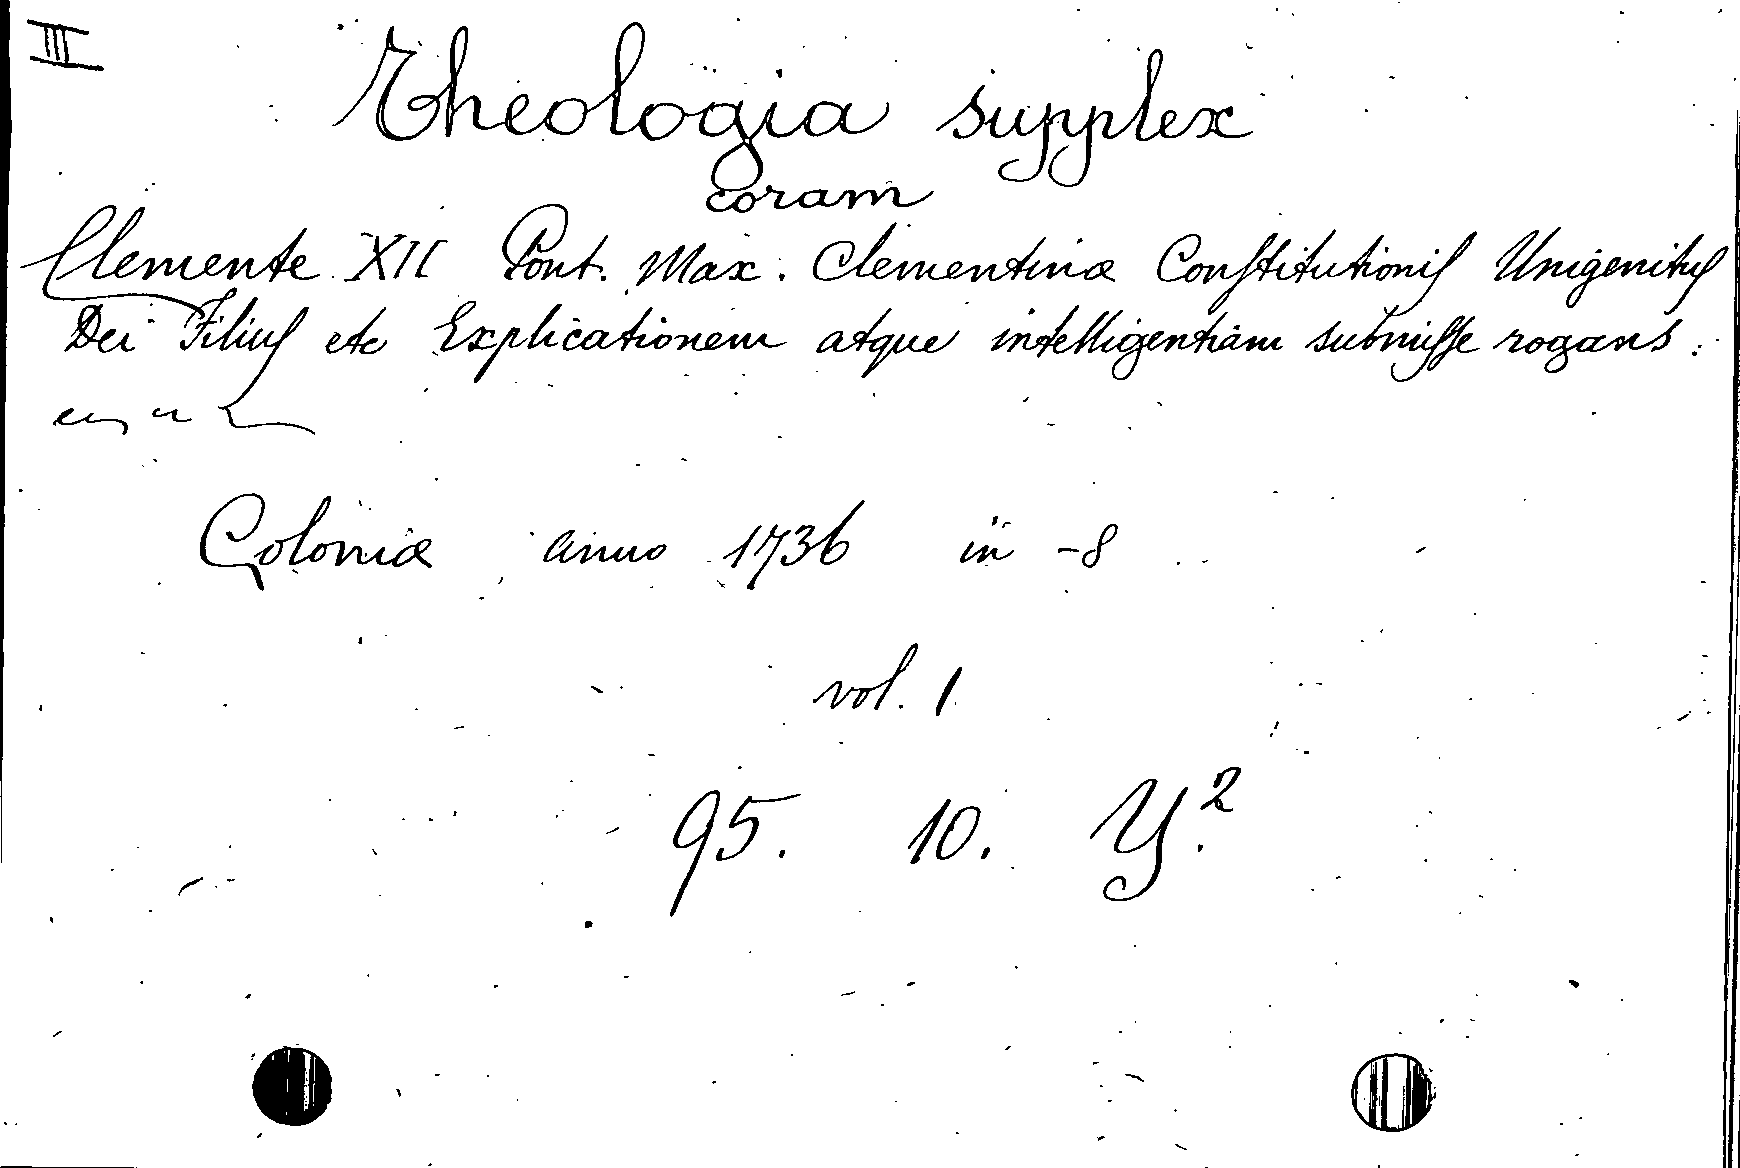 III
Theologia supplex
coram
Clemente XII Pont. Max. Clementinæ Conſtitutionis Unigenitus
Dei Filius etc Explicationem atque intelligentiam submiſſe rogans.
Coloniæ anno 1736 in -8
vol. 1
95. 10. Y.²